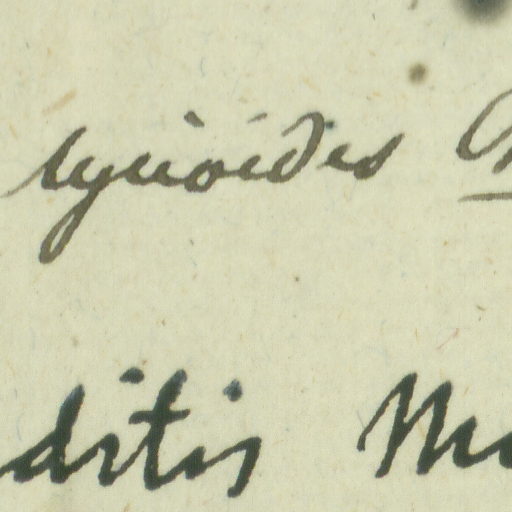 lycioides
ditis